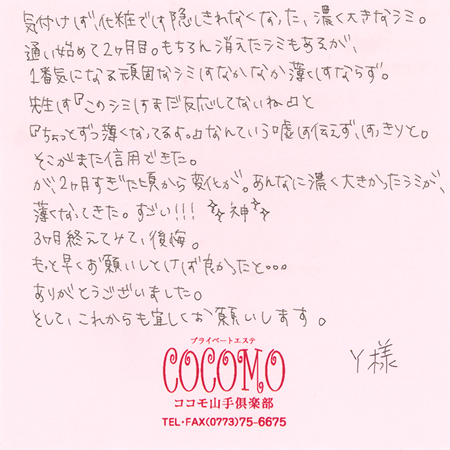 気付けば、化粧では隠しきれなくなった、濃く大きなシミ。
通い始めて2ヶ月目。もちろん消えたシミもあるが、
1番気になる頑固なシミはなかなか薄くはならず。
先生は『このシミはまだ反応してないね』と
『ちょっとずつ薄くなってるよ。』なんていう嘘は伝えず、はっきりと。
そこがまた信用できた。
が、2ヶ月すぎた頃から変化が。あんなに濃く大きかったシミが、
薄くなってきた。すごい!!! 神
3ヶ月終えてみて、後悔。
もっと早くお願いしとけば良かったと...
ありがとうございました。
そして、これからも宜しくお願いします。
Y様
プライベートエステ
COCOMO
ココモ山手倶楽部
TEL・FAX(0773)75-6675